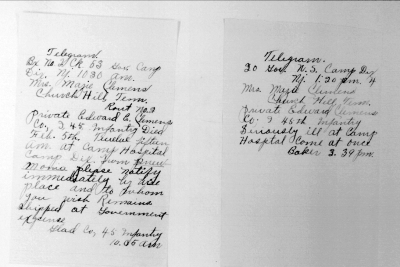 Telegram
Bx No 2 CK 53 Gov. Camp
Dix. NJ. 1030 am.
Mrs. Mazie Clemens
Church Hill Tenn.
Rout No. 3
Private Edward C. Clemens
Co. I 45 Infantry Died
Feb. 5th, Twelve fifteen
am at Camp Hospital
Camp Dix from pneu
monia please notify
immediately by wire
place and to whom
you wish Remains
shipped at Government
expense
Co, 45 Infantry
10.55 am
Telegram.
30 Gov. N.S. Camp Dix
NJ. 1:20 pm. 4
Mrs Mazie Clemens
Church Hill, Tenn.
Private Edward Clemens
Co. I 45th Infantry
Seriously ill at Camp
Hospital Come at once
Baker 3.39 pm.